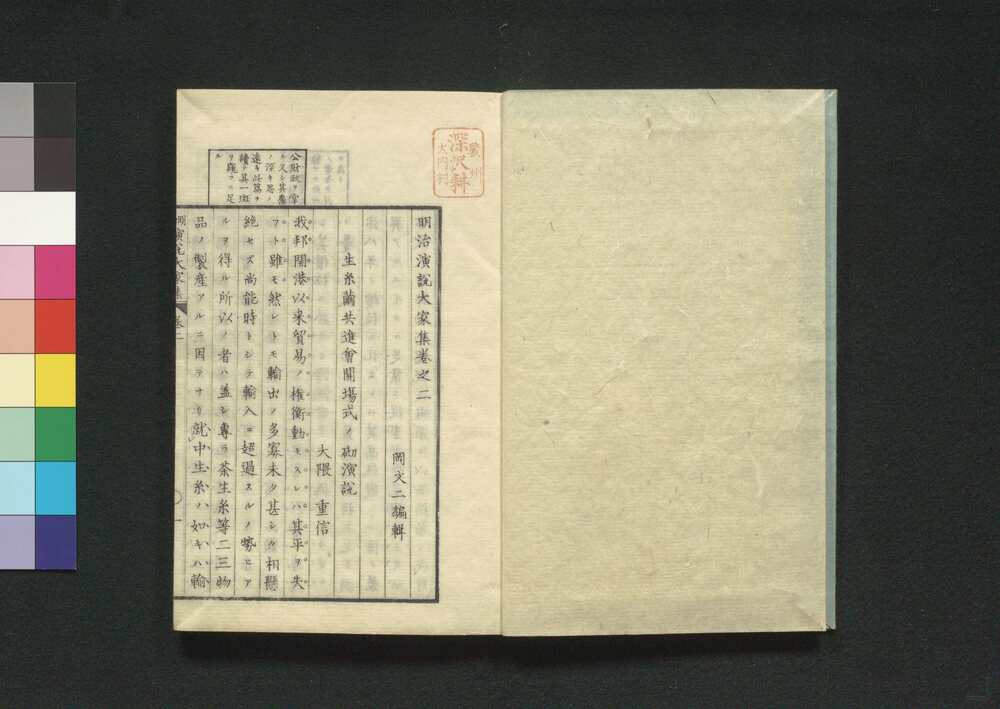 明治演説大家集巻之二
岡文二編輯
生糸繭共進會開塲式ノ砌演説
大隈重信
我邦開港以来貿易ノ権衡動モスレハ其平ヲ失
フト雖モ然レトモ輸出ノ多寡未タ甚シク相懸
絶セス尚能時トシテ輸入ニ超過スルノ勢ヒア
ルヲ得ル所以ノ者ハ盖シ専ラ茶生糸等二三物
品ノ製産アルニ因テナリ就中生糸ハ如キハ輸
公財政ヲ掌
ル久シ其慮
ノ深キ思ノ
遠キ此篇ヲ
讀テ其一斑
ヲ窺フニ足
ル
演説大家集
巻二
深沢耕
大内村